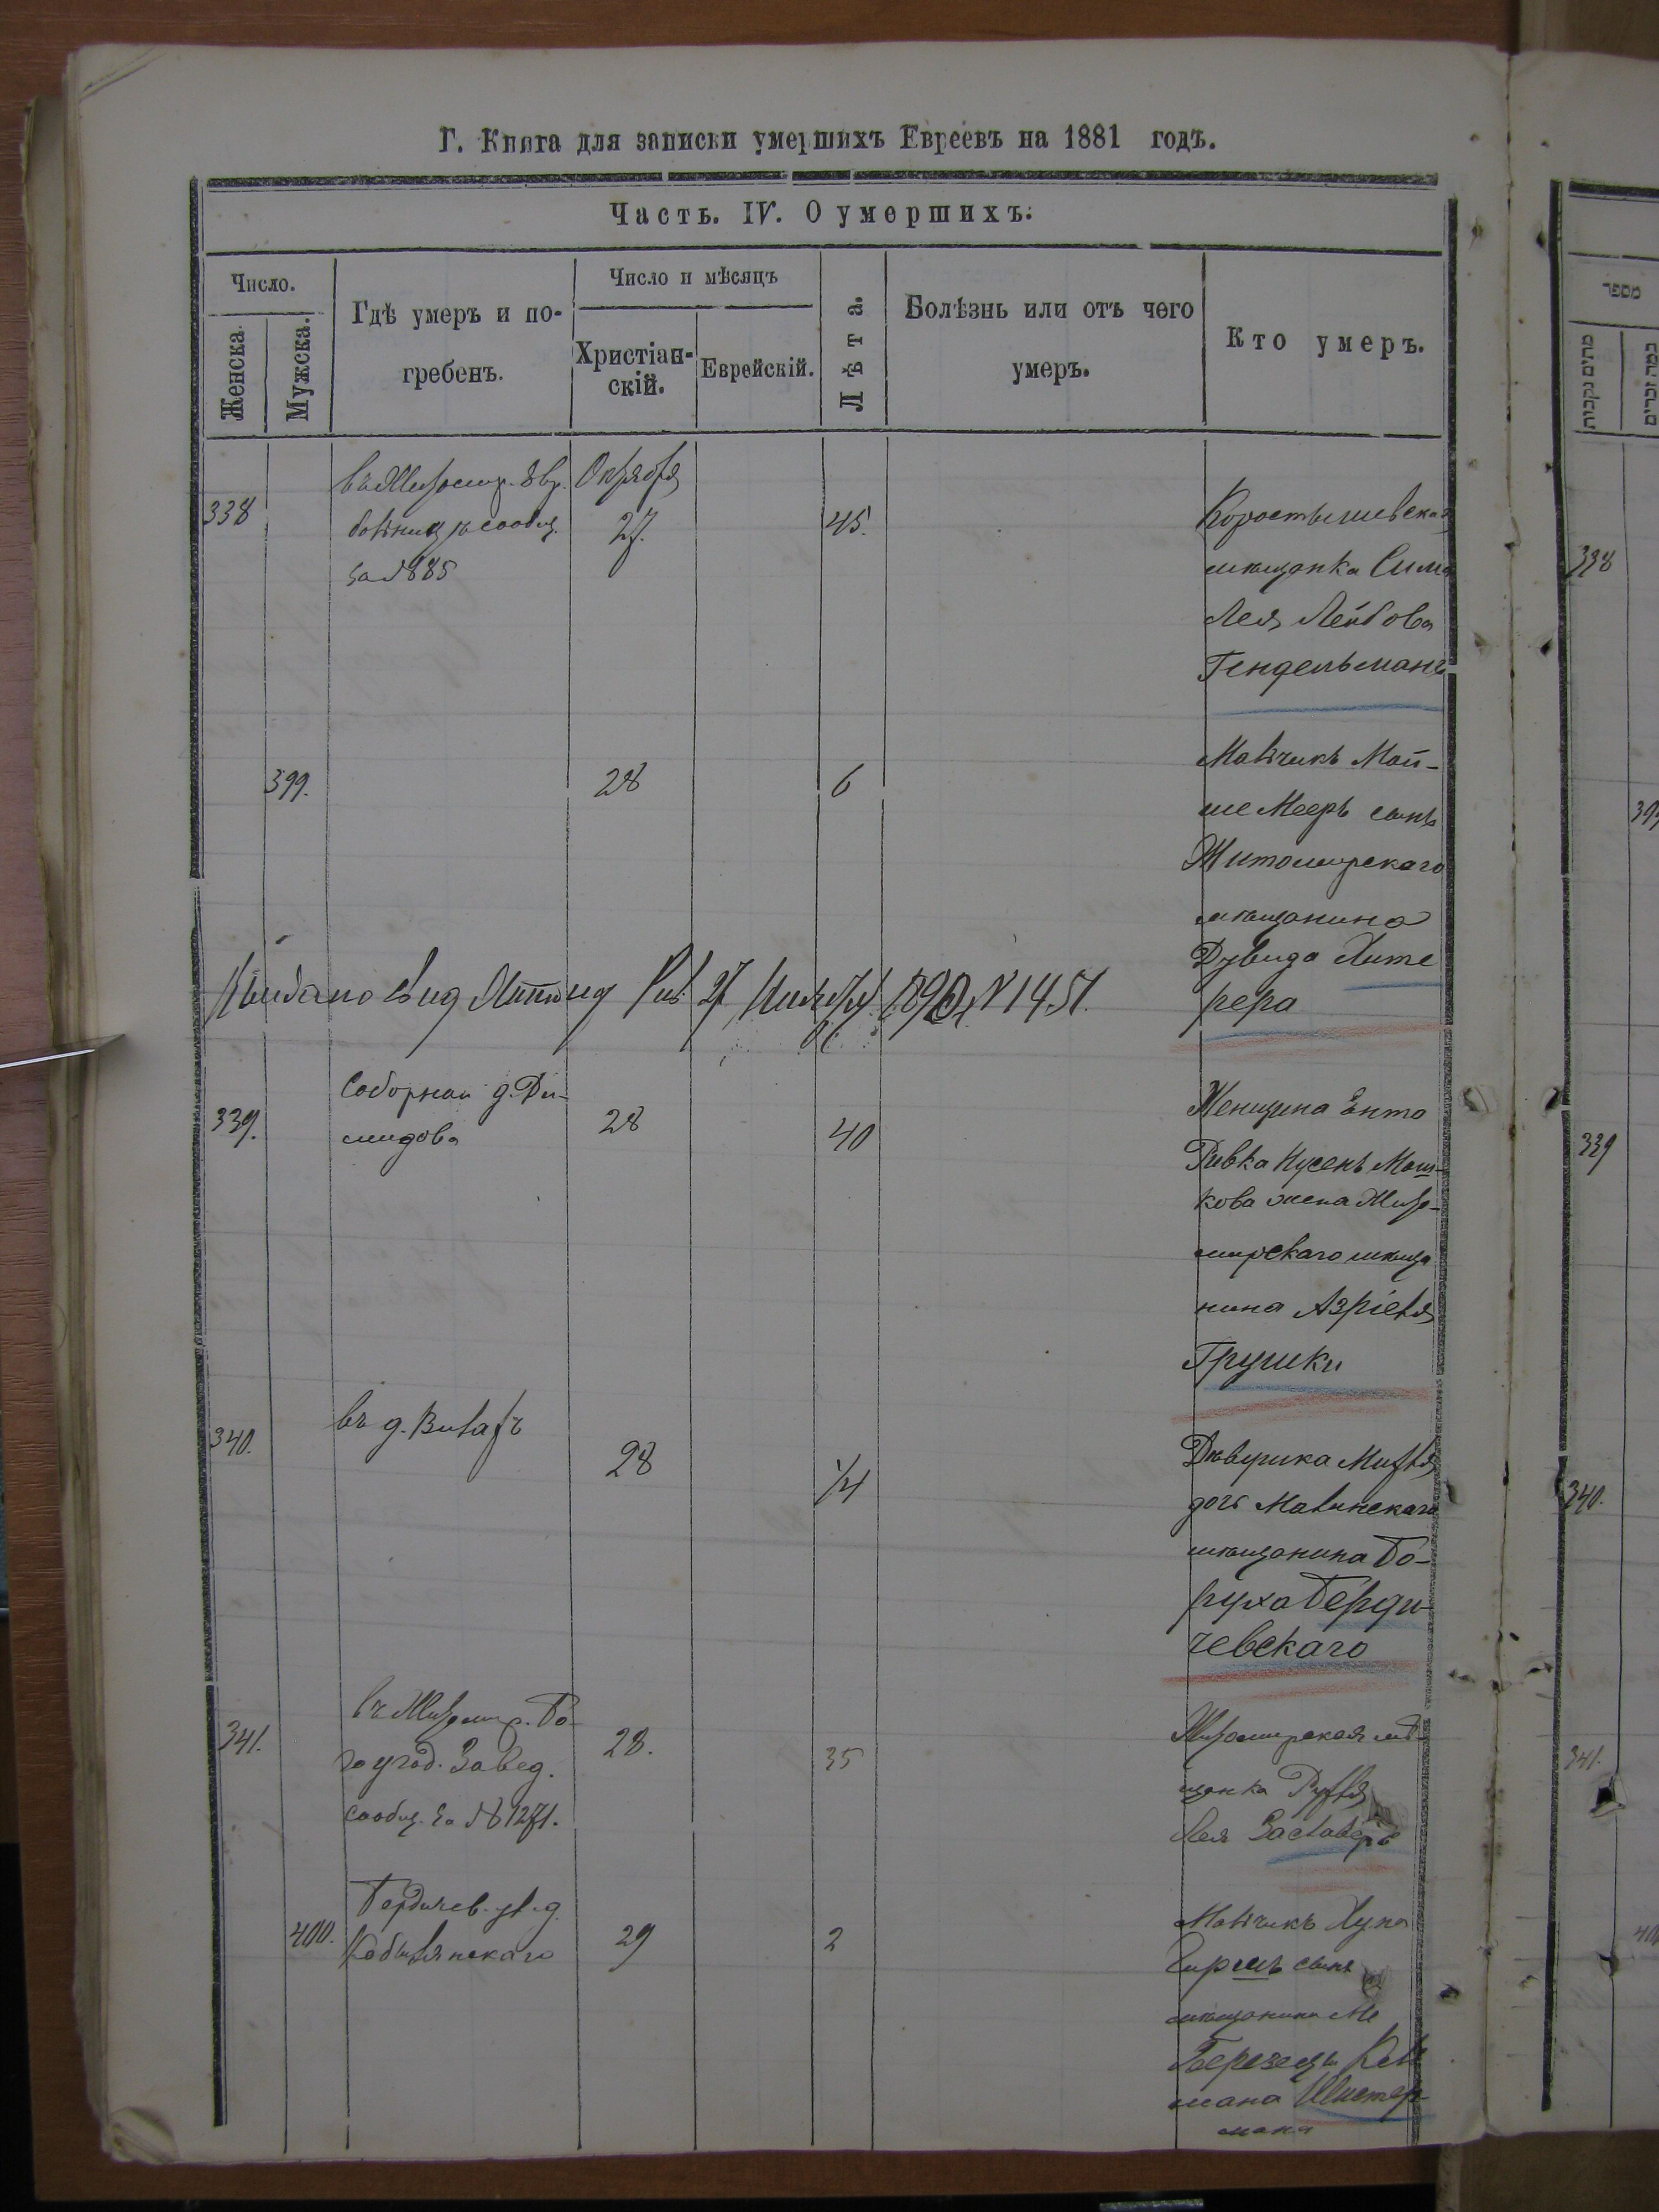 Г. Книга для записки умершихъ Евреевъ на 1881 годъ.
Часть. IV. О умершихъ.
Число.
Женска.
Мужска.
Гдѣ умеръ и по-
гребенъ.
Число и мѣсяцъ
Христіан-
скій.
Еврейскій.
Лѣта.
Болѣзнь или отъ чего
умеръ.
Кто умеръ.
338
въ Житомир. Евр.
больниц сообщ.
за № 885
Октября
27.
45.
Коростышевская
мѣщанка Сима
Лея Лейбова
Гендельманъ
399.
28
6
Мальчикъ Мой-
ше Мееръ сынъ
Житомирскаго
мѣщанина
Дувида Хите
рера
27 1890 № 1451.
339.
Соборная д. Ди-
мидова
28
40
Женщина Ента
Ривка Нусенъ Мош-
кова жена Жито-
мирскаго мѣща
нина Азріеля
Грушки
340.
въ д.
28
1/4
Дѣвушка
дочь Малинскаго
мѣщанина Бо-
руха Берди-
чевскаго
341.
въ Житомир. Бо-
гоугод. Завед.
сообщ. за № 1271.
28.
35
Житомирская мѣ-
щанка Рухля
Лея Заславеръ
400.
Бердичев. ул. д.
Кобылянскаго
29
2
Мальчикъ Хуна
Гиршъ сынъ
мѣщанина Ме
Березецъ Каль
мана Шистер-
мана
ספר
מתים נקבות
338
399
339
340.
341.